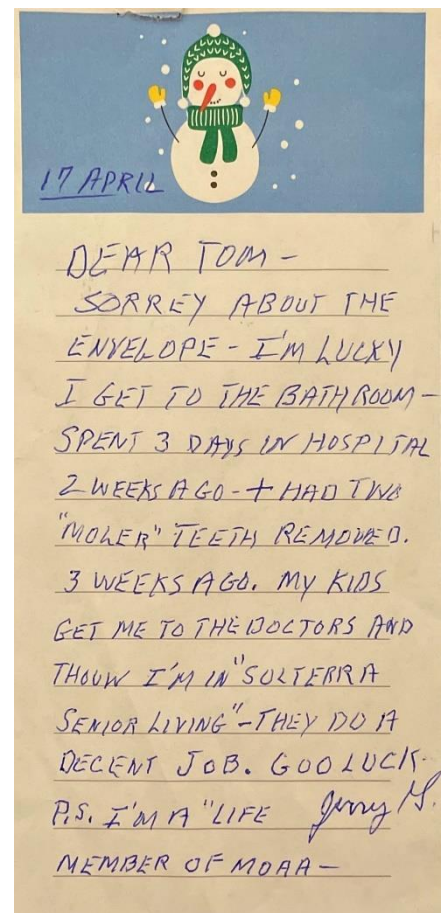 17 APRIL
DEAR TOM -
SORREY ABOUT THE
ENVELOPE - I'M LUCKY
I GET TO THE BATHROOM -
SPENT 3 DAYS IN HOSPITAL
2 WEEKS AGO - + HAD TWO
"MOLER" TEETH REMOVED.
3 WEEKS AGO. MY KIDS
GET ME TO THE DOCTORS AND
THOUW I'M IN "SOLTERRA
SENIOR LIVING" - THEY DO A
DECENT JOB. GOO LUCK.
P.S. I'M A "LIFE Jerry
MEMBER OF MOAA -